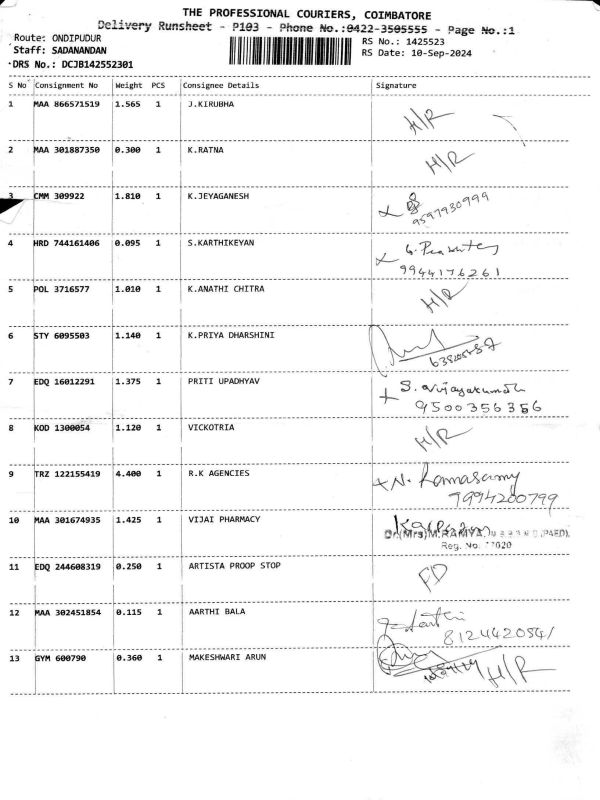 THE PROFESSIONAL COURIERS, COIMBATORE
Delivery Runsheet - P103 - Phone No.:0422-3505555 - Page No.:1
Route: ONDIPUDUR
Staff: SADANANDAN
DRS No.: DCJB142552301
RS No.: 1425523
RS Date: 10-Sep-2024
S No Consignment No Weight PCS Consignee Details Signature
1 MAA 866571519 1.565 1 J.KIRUBHA H/R
2 MAA 301887350 0.300 1 K.RATNA H/R
3 CMM 309922 1.810 1 K.JEYAGANESH
9597930999
4 HRD 744161406 0.095 1 S.KARTHIKEYAN
9944176261
5 POL 3716577 1.010 1 K.ANATHI CHITRA H/R
6 STY 6095503 1.140 1 K.PRIYA DHARSHINI
7 EDQ 16012291 1.375 1 PRITI UPADHYAV S.
9500356356
8 KOD 1300054 1.120 1 VICKOTRIA H/R
9 TRZ 122155419 4.400 1 R.K AGENCIES N. Ramasamy
9994200799
10 MAA 301674935 1.425 1 VIJAI PHARMACY
Dr.(Mrs)M.RAMYA,
Reg. No.
11 EDQ 244608319 0.250 1 ARTISTA PROOP STOP
12 MAA 302451854 0.115 1 AARTHI BALA
8124420541
13 GYM 600790 0.360 1 MAKESHWARI ARUN H/R